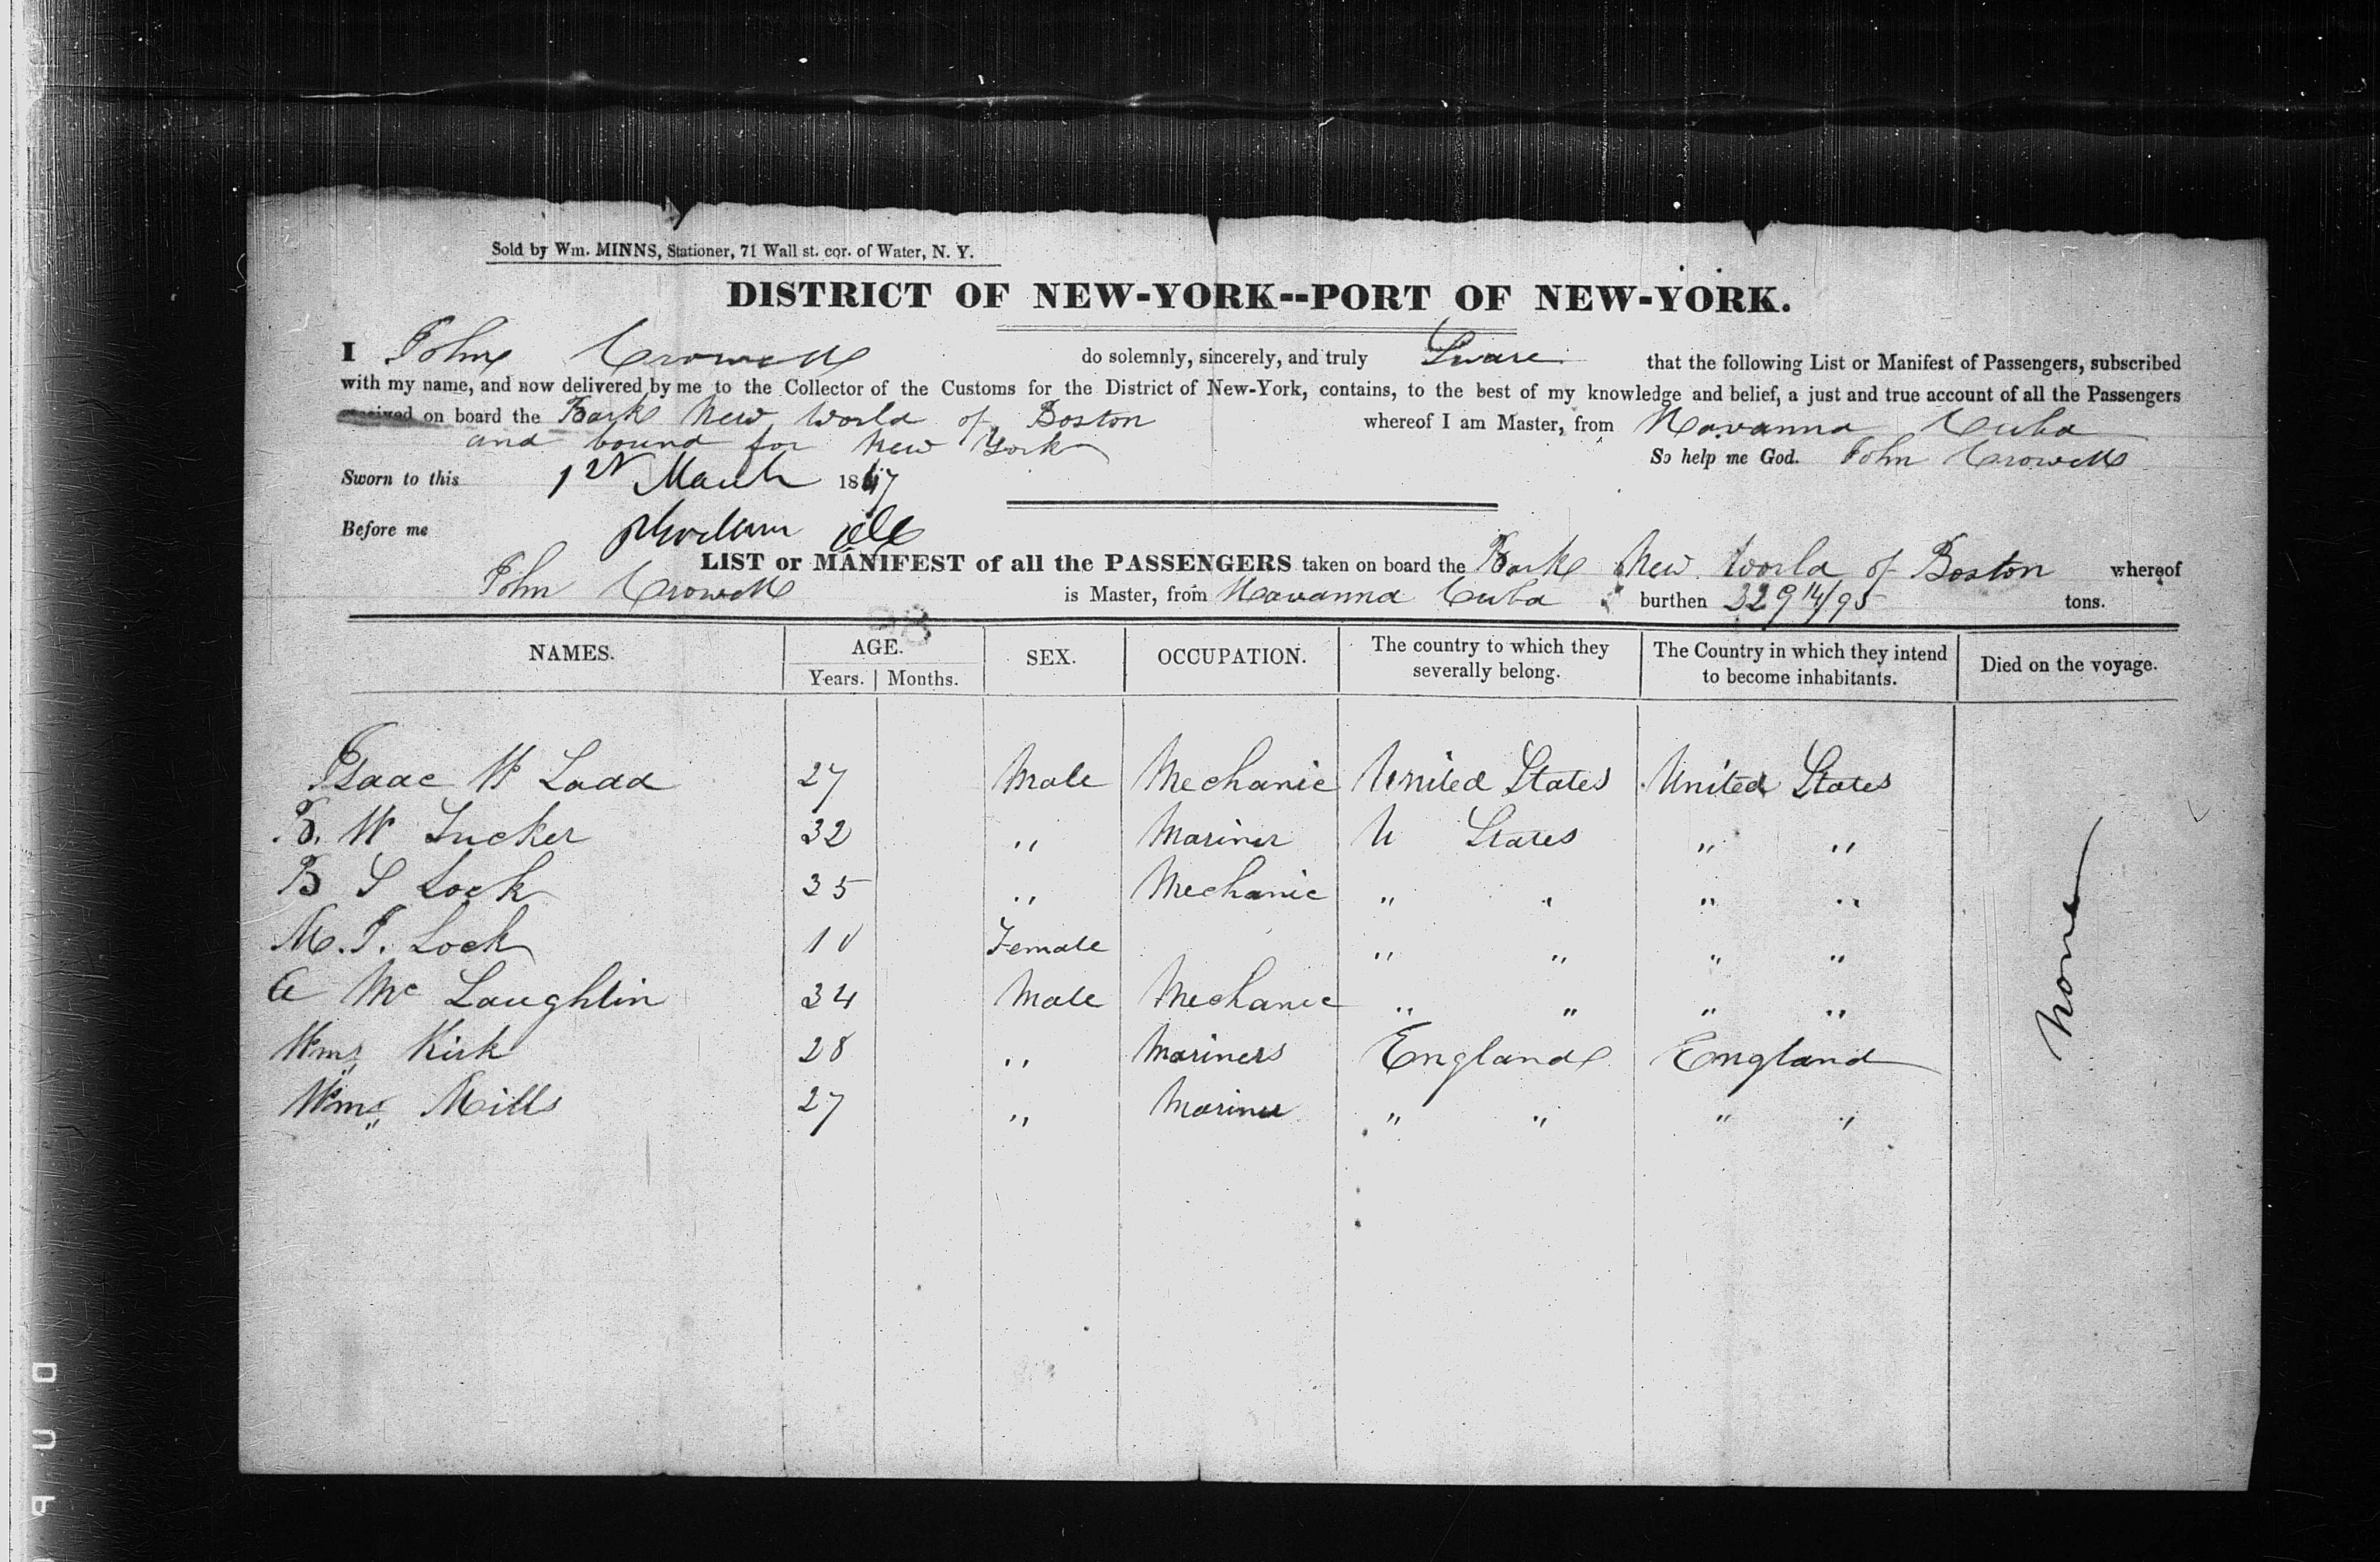 Sold by Wm. MINNS, Stationer, 71 Wall st. cor. of Water, N. Y.
DISTRICT OF NEW-YORK--PORT OF NEW-YORK.
I John Crowell do solemnly, sincerely, and truly Sware that the following List or Manifest of Passengers, subscribed
with my name, and now delivered by me to the Collector of the Customs for the District of New-York, contains, to the best of my knowledge and belief, a just and true account of all the Passengers
received on board the Bark New World of Boston whereof I am Master, from Havanna Cuba
and bound for New York So help me God. John Crowell
Sworn to this 1st March 1847
Before me
LIST or MANIFEST of all the PASSENGERS taken on board the Bark New World of Boston whereof
John Crowell is Master, from Havanna Cuba burthen 329 14/95 tons.
NAMES. AGE. Years. Months. SEX. OCCUPATION. The country to which they severally belong. The Country in which they intend to become inhabitants. Died on the voyage.
Isaac W Ladd 27 Male Mechanic United States United States
B. W Tucker 32 " Mariner U States " "
B S Lock 35 " Mechanic " " " "
M. J. Lock 10 Female " " " "
A Mc Laughlin 34 Male Mechanic " " " "
Wm Kirk 28 " Mariners England England
Wm Mills 27 " Mariner " " " "
None